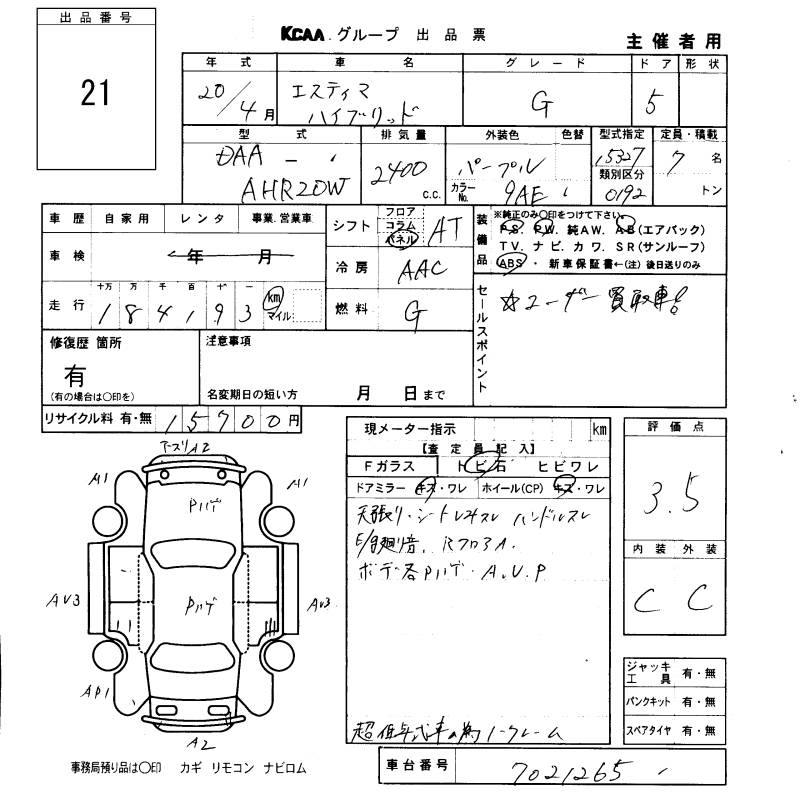 出品番号
21
KCAA.グループ 出品票
主催者用
年式 車名 グレード ドア 形状
20/4月 エスティマ ハイブリッド G 5
型式 排気量 外装色 色替 型式指定 定員・積載
DAA - AHR20W 2400 C.C. パープル 15327 7名
カラーNo. 9AE 類別区分 0192 トン
車歴 自家用 レンタ 事業.営業車
車検 年 月
走行 十万 万 千 百 十 一
184193 km マイル
シフト フロア コラム パネル AT
冷房 AAC
燃料 G
装備品 ※純正のみ○印をつけて下さい。
P.S. P.W. 純AW. A.B(エアバック)
T.V. ナビ. カワ. SR(サンルーフ)
ABS・新車保証書←(注)後日送りのみ
セールスポイント
☆ユーザー買取車!
修復歴 箇所
有
(有の場合は○印を)
注意事項
名変期日の短い方 月 日まで
リサイクル料 有・無 15700円
現メーター指示 km
【査定員記入】
Fガラス トビ石 ヒビワレ
ドアミラー キズ・ワレ ホイール(CP) キズ・ワレ
天張り・シートレオスレ ハンドルスレ
E/g廻り音. RフロアA.
ボデー各Pハゲ・A.U.P
超低年式車の為ノークレーム
評価点
3.5
内装 外装
C C
ジャッキ工具 有・無
パンクキット 有・無
スペアタイヤ 有・無
車台番号 7021265
A2
A1 Pハゲ A1
AU3 Pハゲ AU3
AP1
A2
事務局預り品は○印 カギ リモコン ナビロム